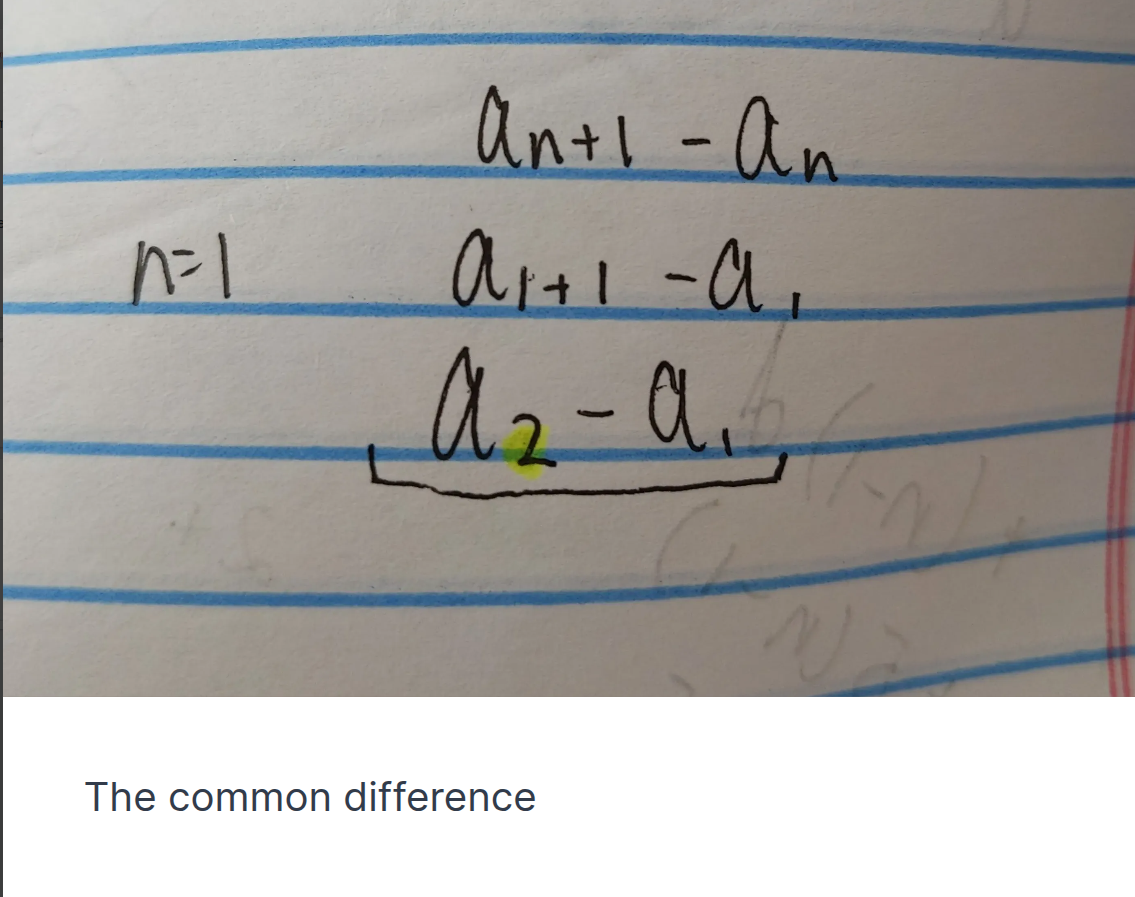 aₙ₊₁ - aₙ
n=1 a₁₊₁ - a₁
a₂ - a₁
The common difference